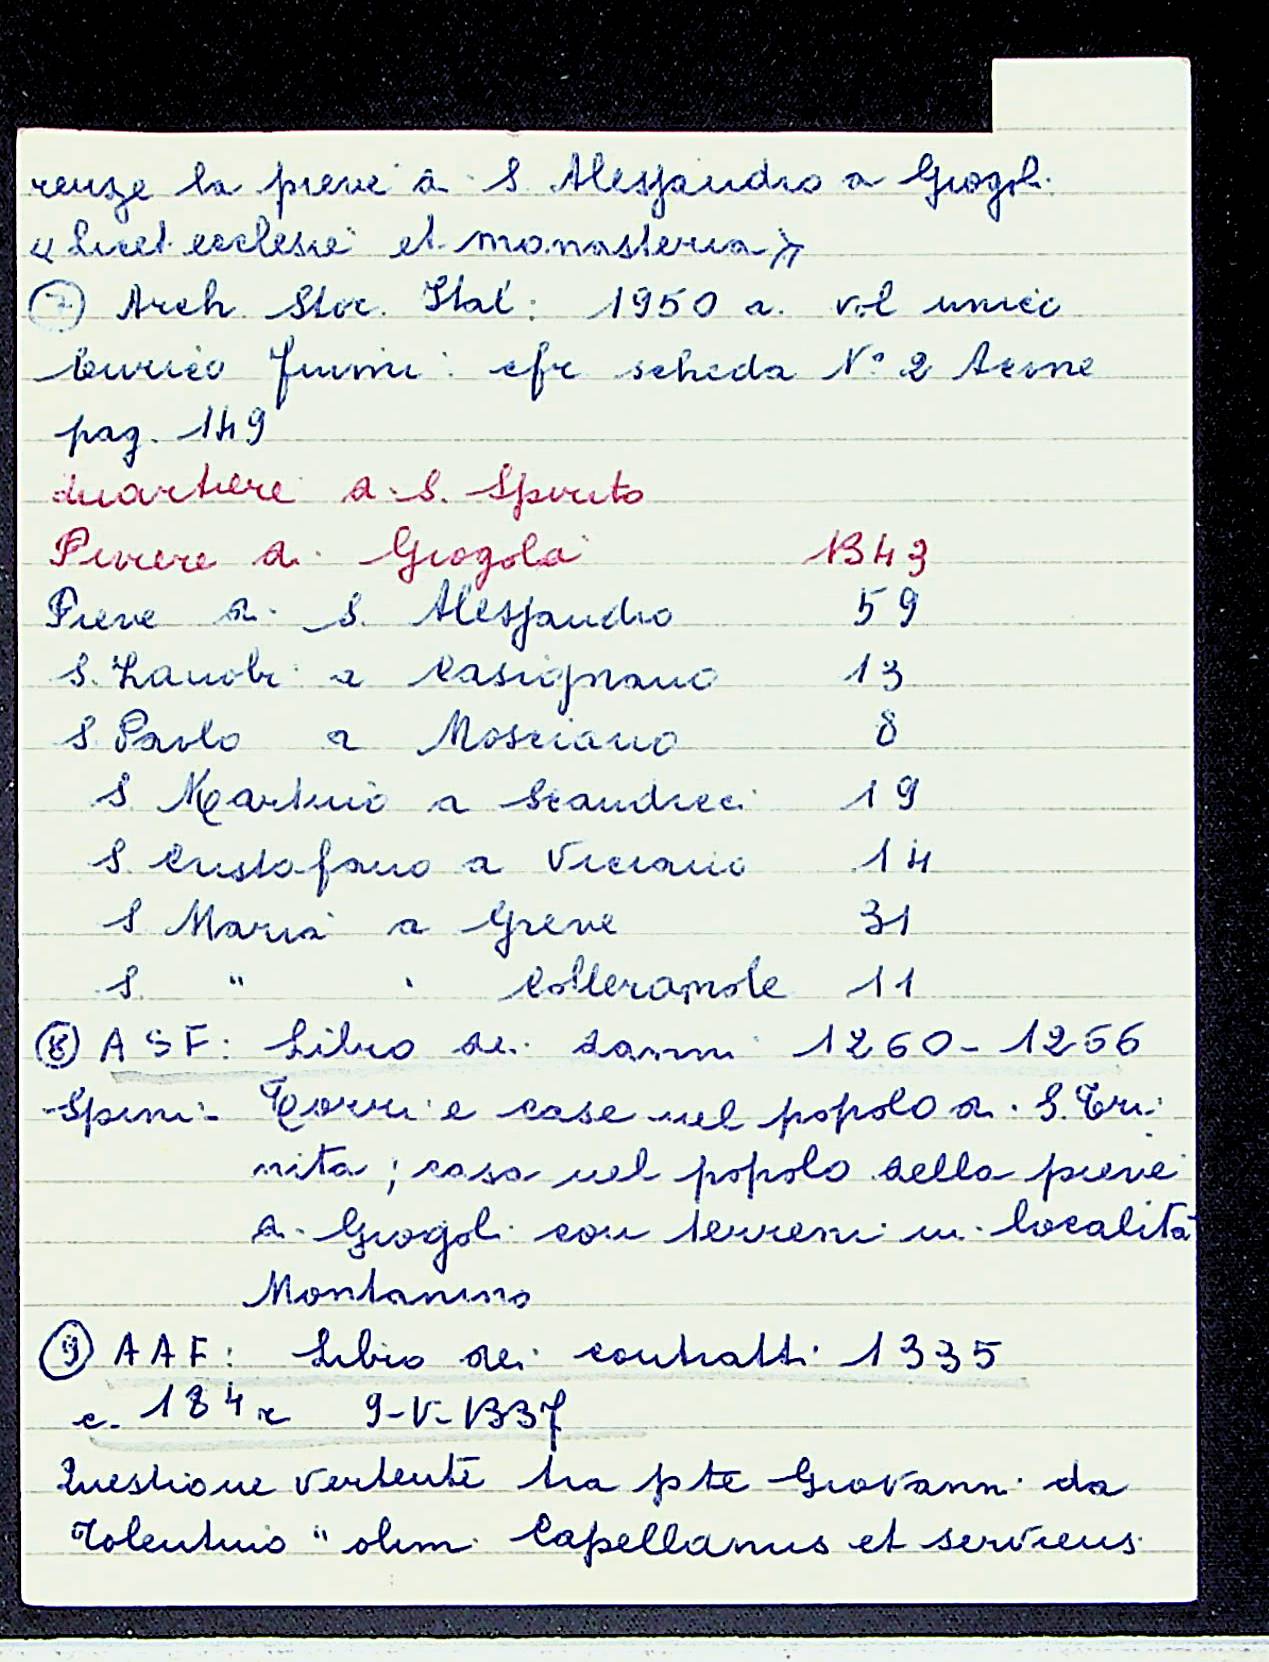 renze la pieve di S. Alessandro a Giogoli
«Licet ecclesie et monasteria»
⑦ Arch. Stor. Ital: 1950 a. vol unico
Enrico Fiumi: cfr scheda N° 2 Acone
pag. 149
Quartiere di S. Spirito
Piviere di Giogoli 1343
Pieve di S. Alessandro 59
S. Zanobi a Casignano 13
S. Paolo a Mosciano 8
S Martino a Scandicci 19
S. Cristofano a Viciano 14
S Maria a Greve 31
S. " " Colleramole 11
⑧ ASF: Libro dei danni 1260-1266
Spini:- Torri e case nel popolo di S. Tri-
nita; casa nel popolo della pieve
di Giogoli con terreni in località
Montanino
⑨ AAF: Libro dei contratti 1335
c. 184r 9-V-1337
Questione vertente tra pte Giovanni da
Tolentino " olim Capellanus et serviens